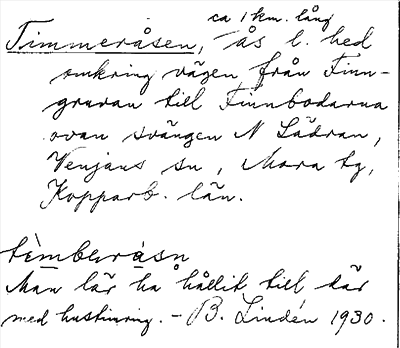 ca 1 km. lång
Timmeråsen, ås l. hed
omkring vägen från Finn-
gruvan till Finnbodarna
ovan svängen N Lädran,
Venjans sn, Mora tg,
Kopparb. län.
tìmberásn
Man lär ha hållit till där
med hustimring. – B. Lindén 1930.